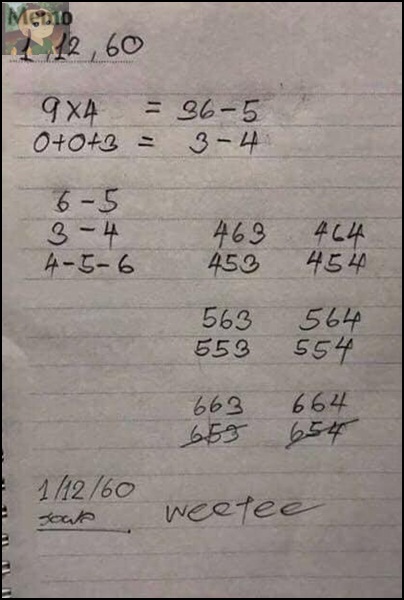 Memo
1,12,60
9x4 = 36-5
0+0+3 = 3-4
6-5
3-4 463 464
4-5-6 453 454
563 564
553 554
663 664
653 654
1/12/60
weetee